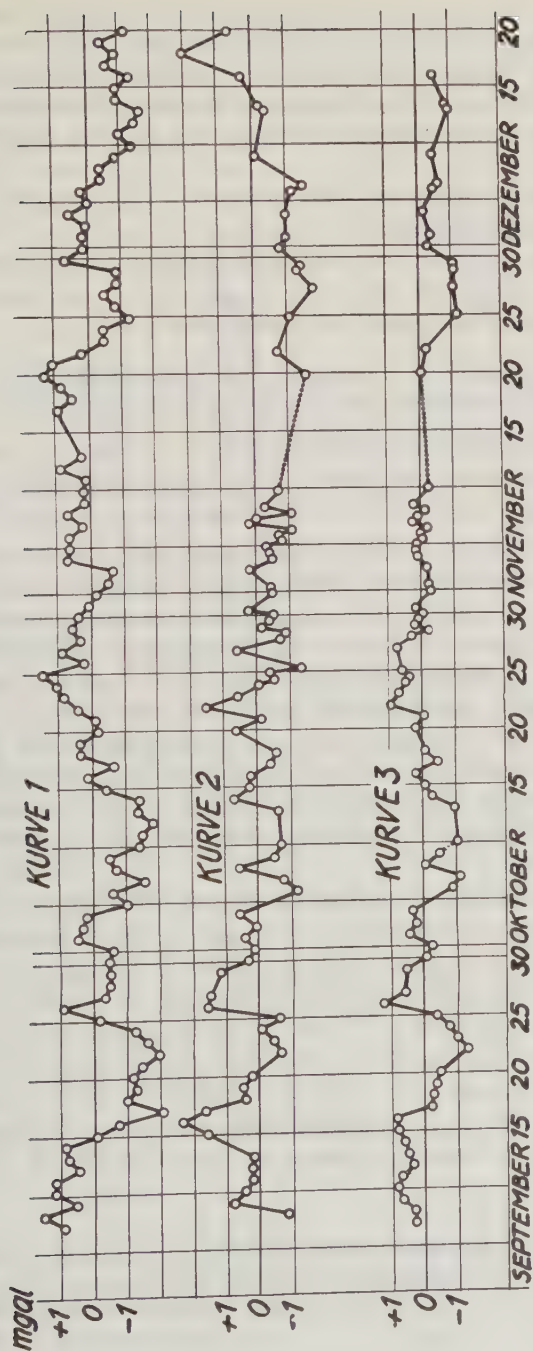 mgal
+1
0
-1
+1
0
-1
+1
0
-1
KURVE 1
KURVE 2
KURVE 3
SEPTEMBER 15 20 25 30 OKTOBER 15 20 25 30 NOVEMBER 15 20 25 30 DEZEMBER 15 20